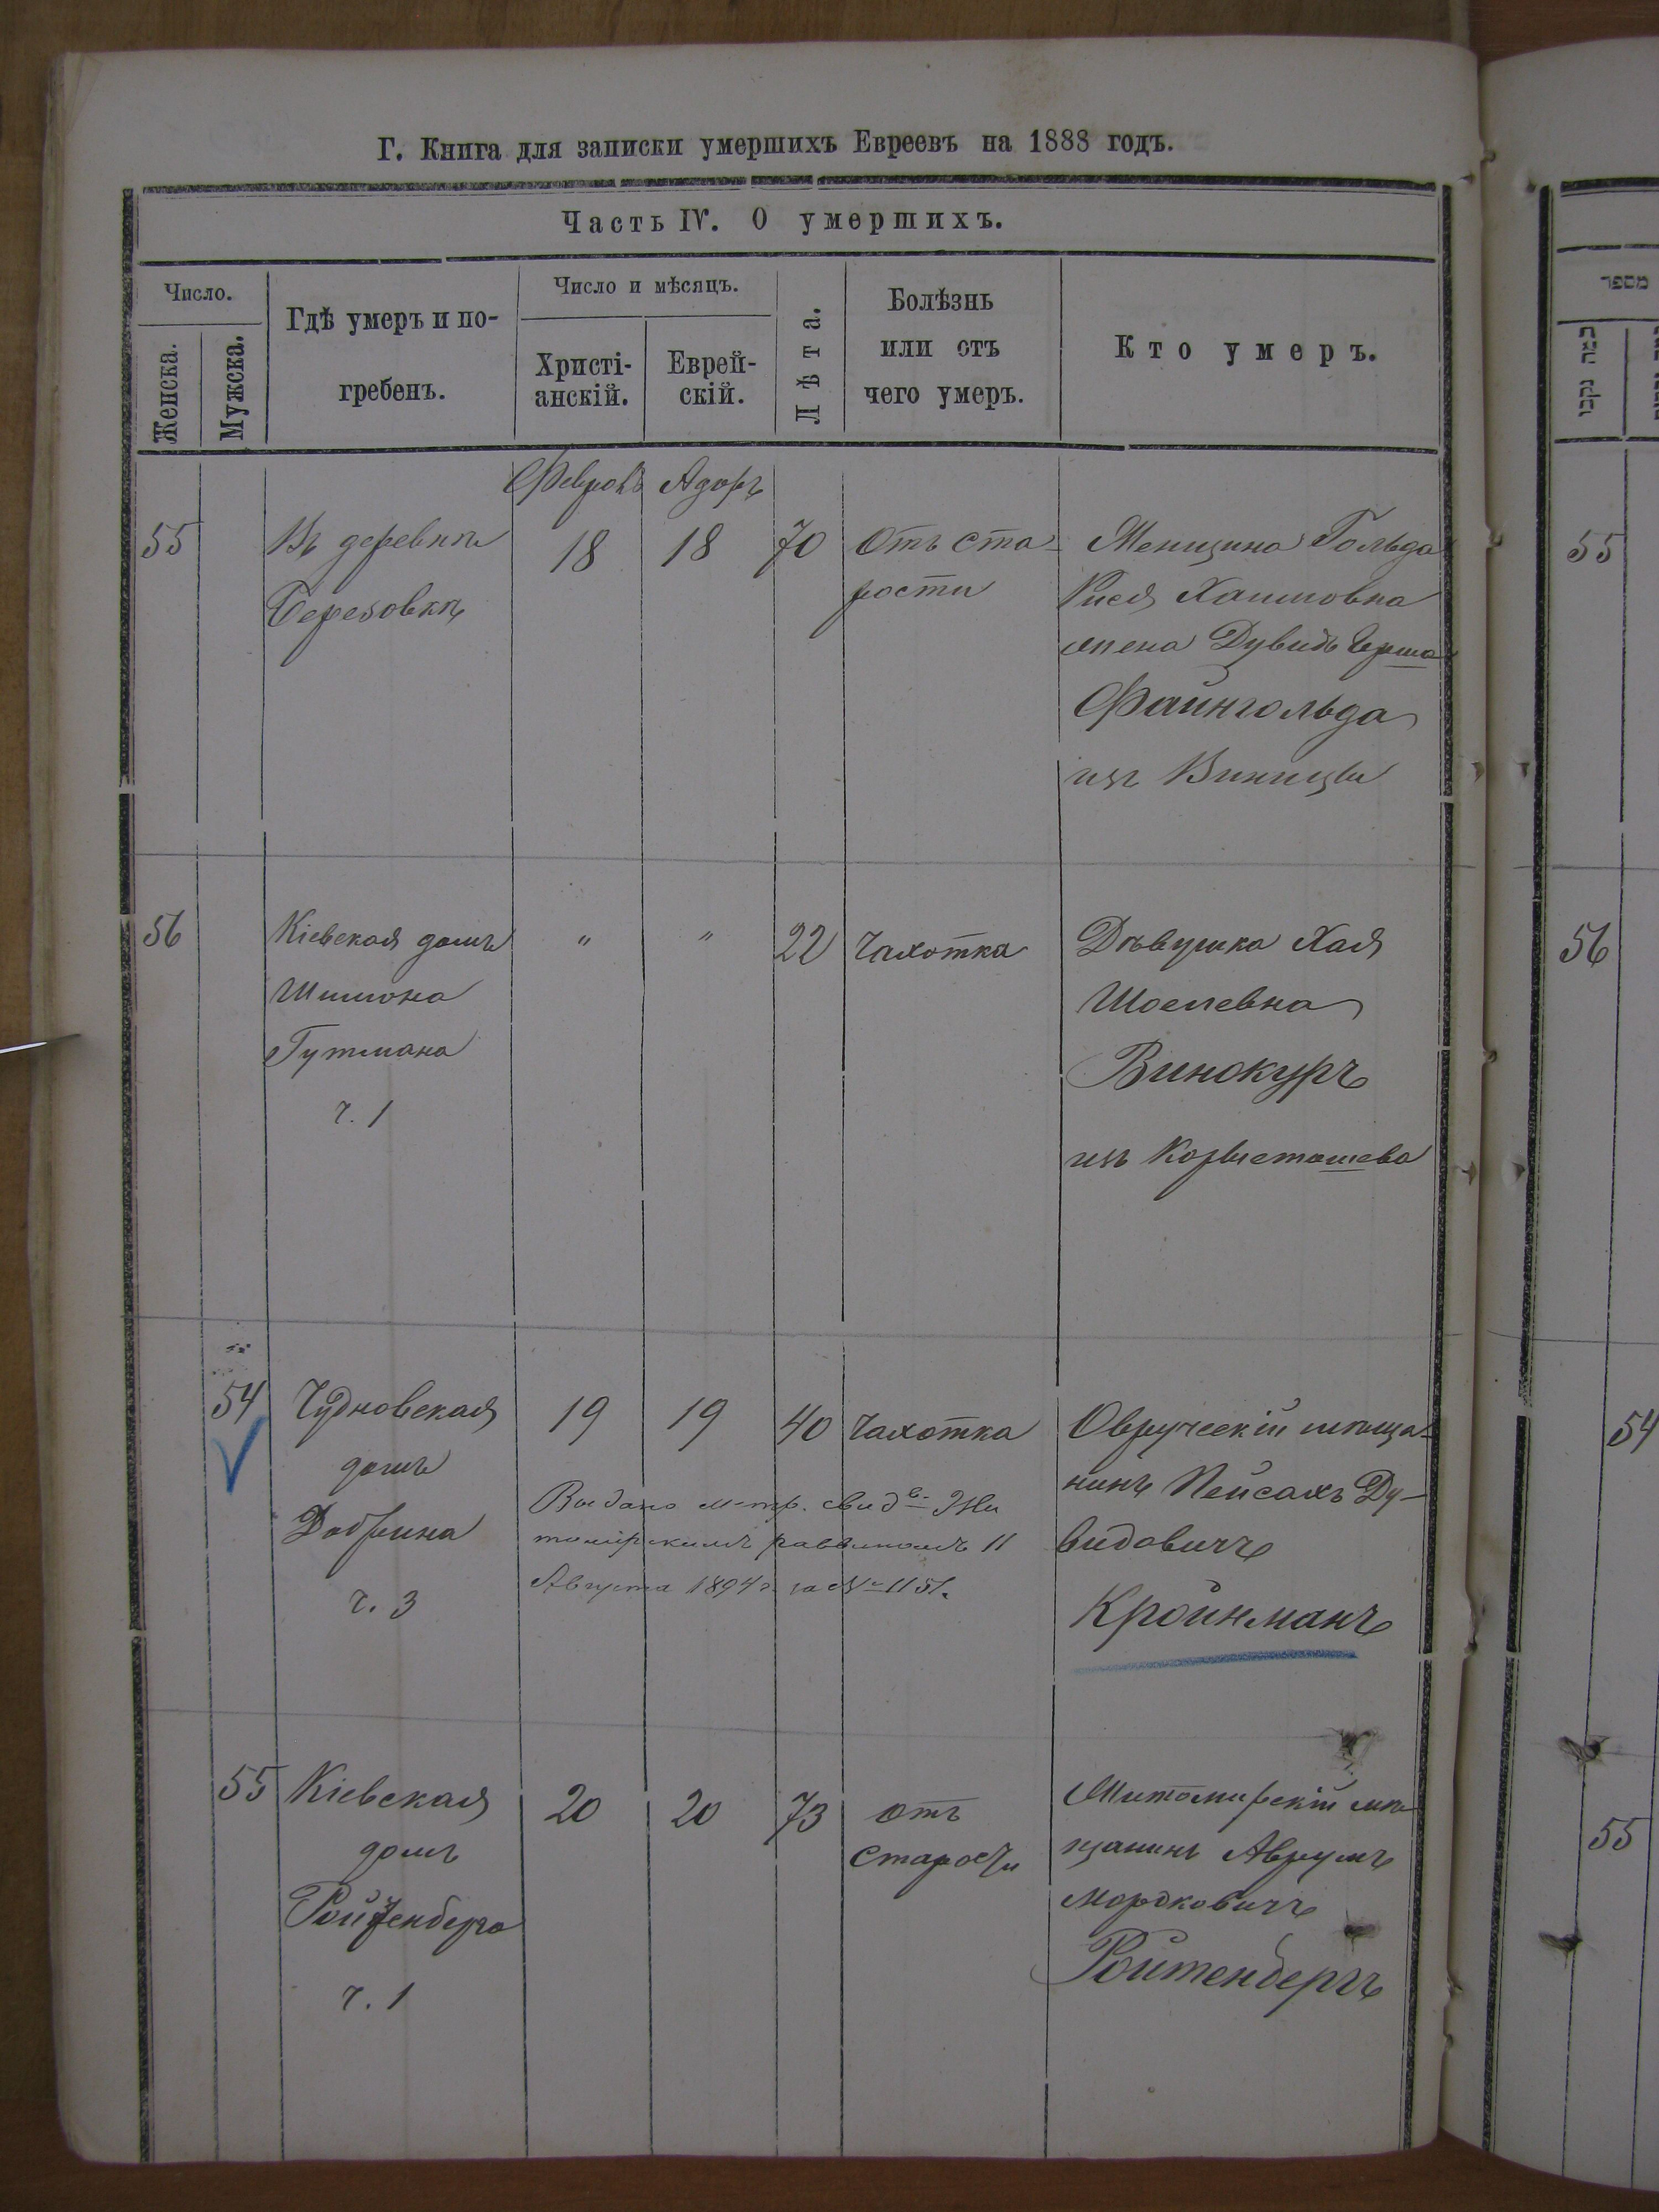 Г. Книга для записки умершихъ Евреевъ на 1888 годъ.
Часть IV. О умершихъ.
Число.
Женска.
Мужска.
Гдѣ умеръ и по-
гребенъ.
Число и мѣсяцъ.
Христі-
анскій.
Еврей-
скій.
Лѣта.
Болѣзнь
или отъ
чего умеръ.
Кто умеръ.
Адаръ
55
Въ деревнѣ
Березовкѣ
18
18
70
Отъ ста-
рости
Женщина Гольда
Хаимовна
жена Дувидъ Герша
Файнгольда
изъ Винницы
56
Кіевская домъ
Шимона
Гутмана
ч. 1
"
"
22
Чахотка
Дѣвушка Хая
Шоелевна
Винокуръ
изъ
54
Чудновская
домъ
Добрина
ч. 3
19
19
40
Чахотка
Выдано метр. свид. Жи
томірскимъ раввиномъ 11
Августа 1894 г. за № 1151.
Овручскій мѣща-
нинъ Пейсахъ Ду-
видовичъ
Кройнманъ
55
Кіевская
домъ
Ройтенберга
ч. 1
20
20
73
отъ
старости
Житомирскій мѣ
щанинъ Аврумъ
Мордковичъ
Ройтенбергъ
מספר
55
56
54
55